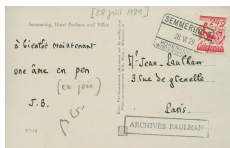 [28 juin 1929]
Semmering, Hotel Panhans und Villen
SEMMERING
28.VI.29
24
à bientôt maintenant
une âme en pen
(en joie)
J.B.
M. Jean Paulhan
3 rue de grenelle
Paris
ARCHIVES PAULHAN